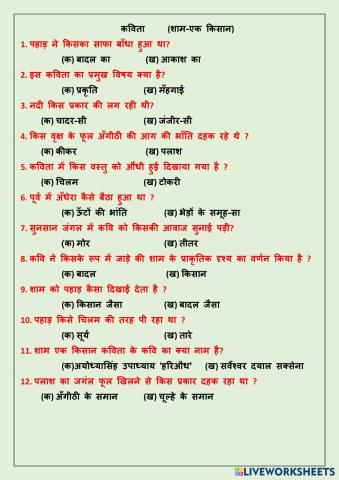 कविता (शाम-एक किसान)
1. पहाड़ ने किसका साफा बाँधा हुआ था?
(क) बादल का (ख) आकाश का
2. इस कविता का प्रमुख विषय क्या है?
(क) प्रकृति (ख) मँहगाई
3. नदी किस प्रकार की लग रही थी?
(क) चादर-सी (ख) जंजीर-सी
4. किस वृक्ष के फूल अँगीठी की आग की भाँति दहक रहे थे ?
(क) कीकर (ख) पलाश
5. कविता में किस वस्तु को औंधी हुई दिखाया गया है ?
(क) चिलम (ख) टोकरी
6. पूर्व में अँधेरा कैसे बैठा हुआ था ?
(क) ऊँटों की भांति (ख) भेड़ों के समूह-सा
7. सुनसान जंगल में कवि को किसकी आवाज सुनाई पड़ी?
(क) मोर (ख) तीतर
8. कवि ने किसके रूप में जाड़े की शाम के प्राकृतिक दृश्य का वर्णन किया है ?
(क) बादल (ख) किसान
9. शाम को पहाड़ कैसा दिखाई देता है ?
(क) किसान जैसा (ख) बादल जैसा
10. पहाड़ किसे चिलम की तरह पी रहा था ?
(क) सूर्य (ख) तारे
11. शाम एक किसान कविता के कवि का क्या नाम है?
(क)अयोध्यासिंह उपाध्याय 'हरिऔध' (ख) सर्वेश्वर दयाल सक्सेना
12. पलाश का जगंल फूल खिलने से किस प्रकार दहक रहा था ?
(क) अँगीठी के समान (ख) चूल्हे के समान
LIVEWORKSHEETS